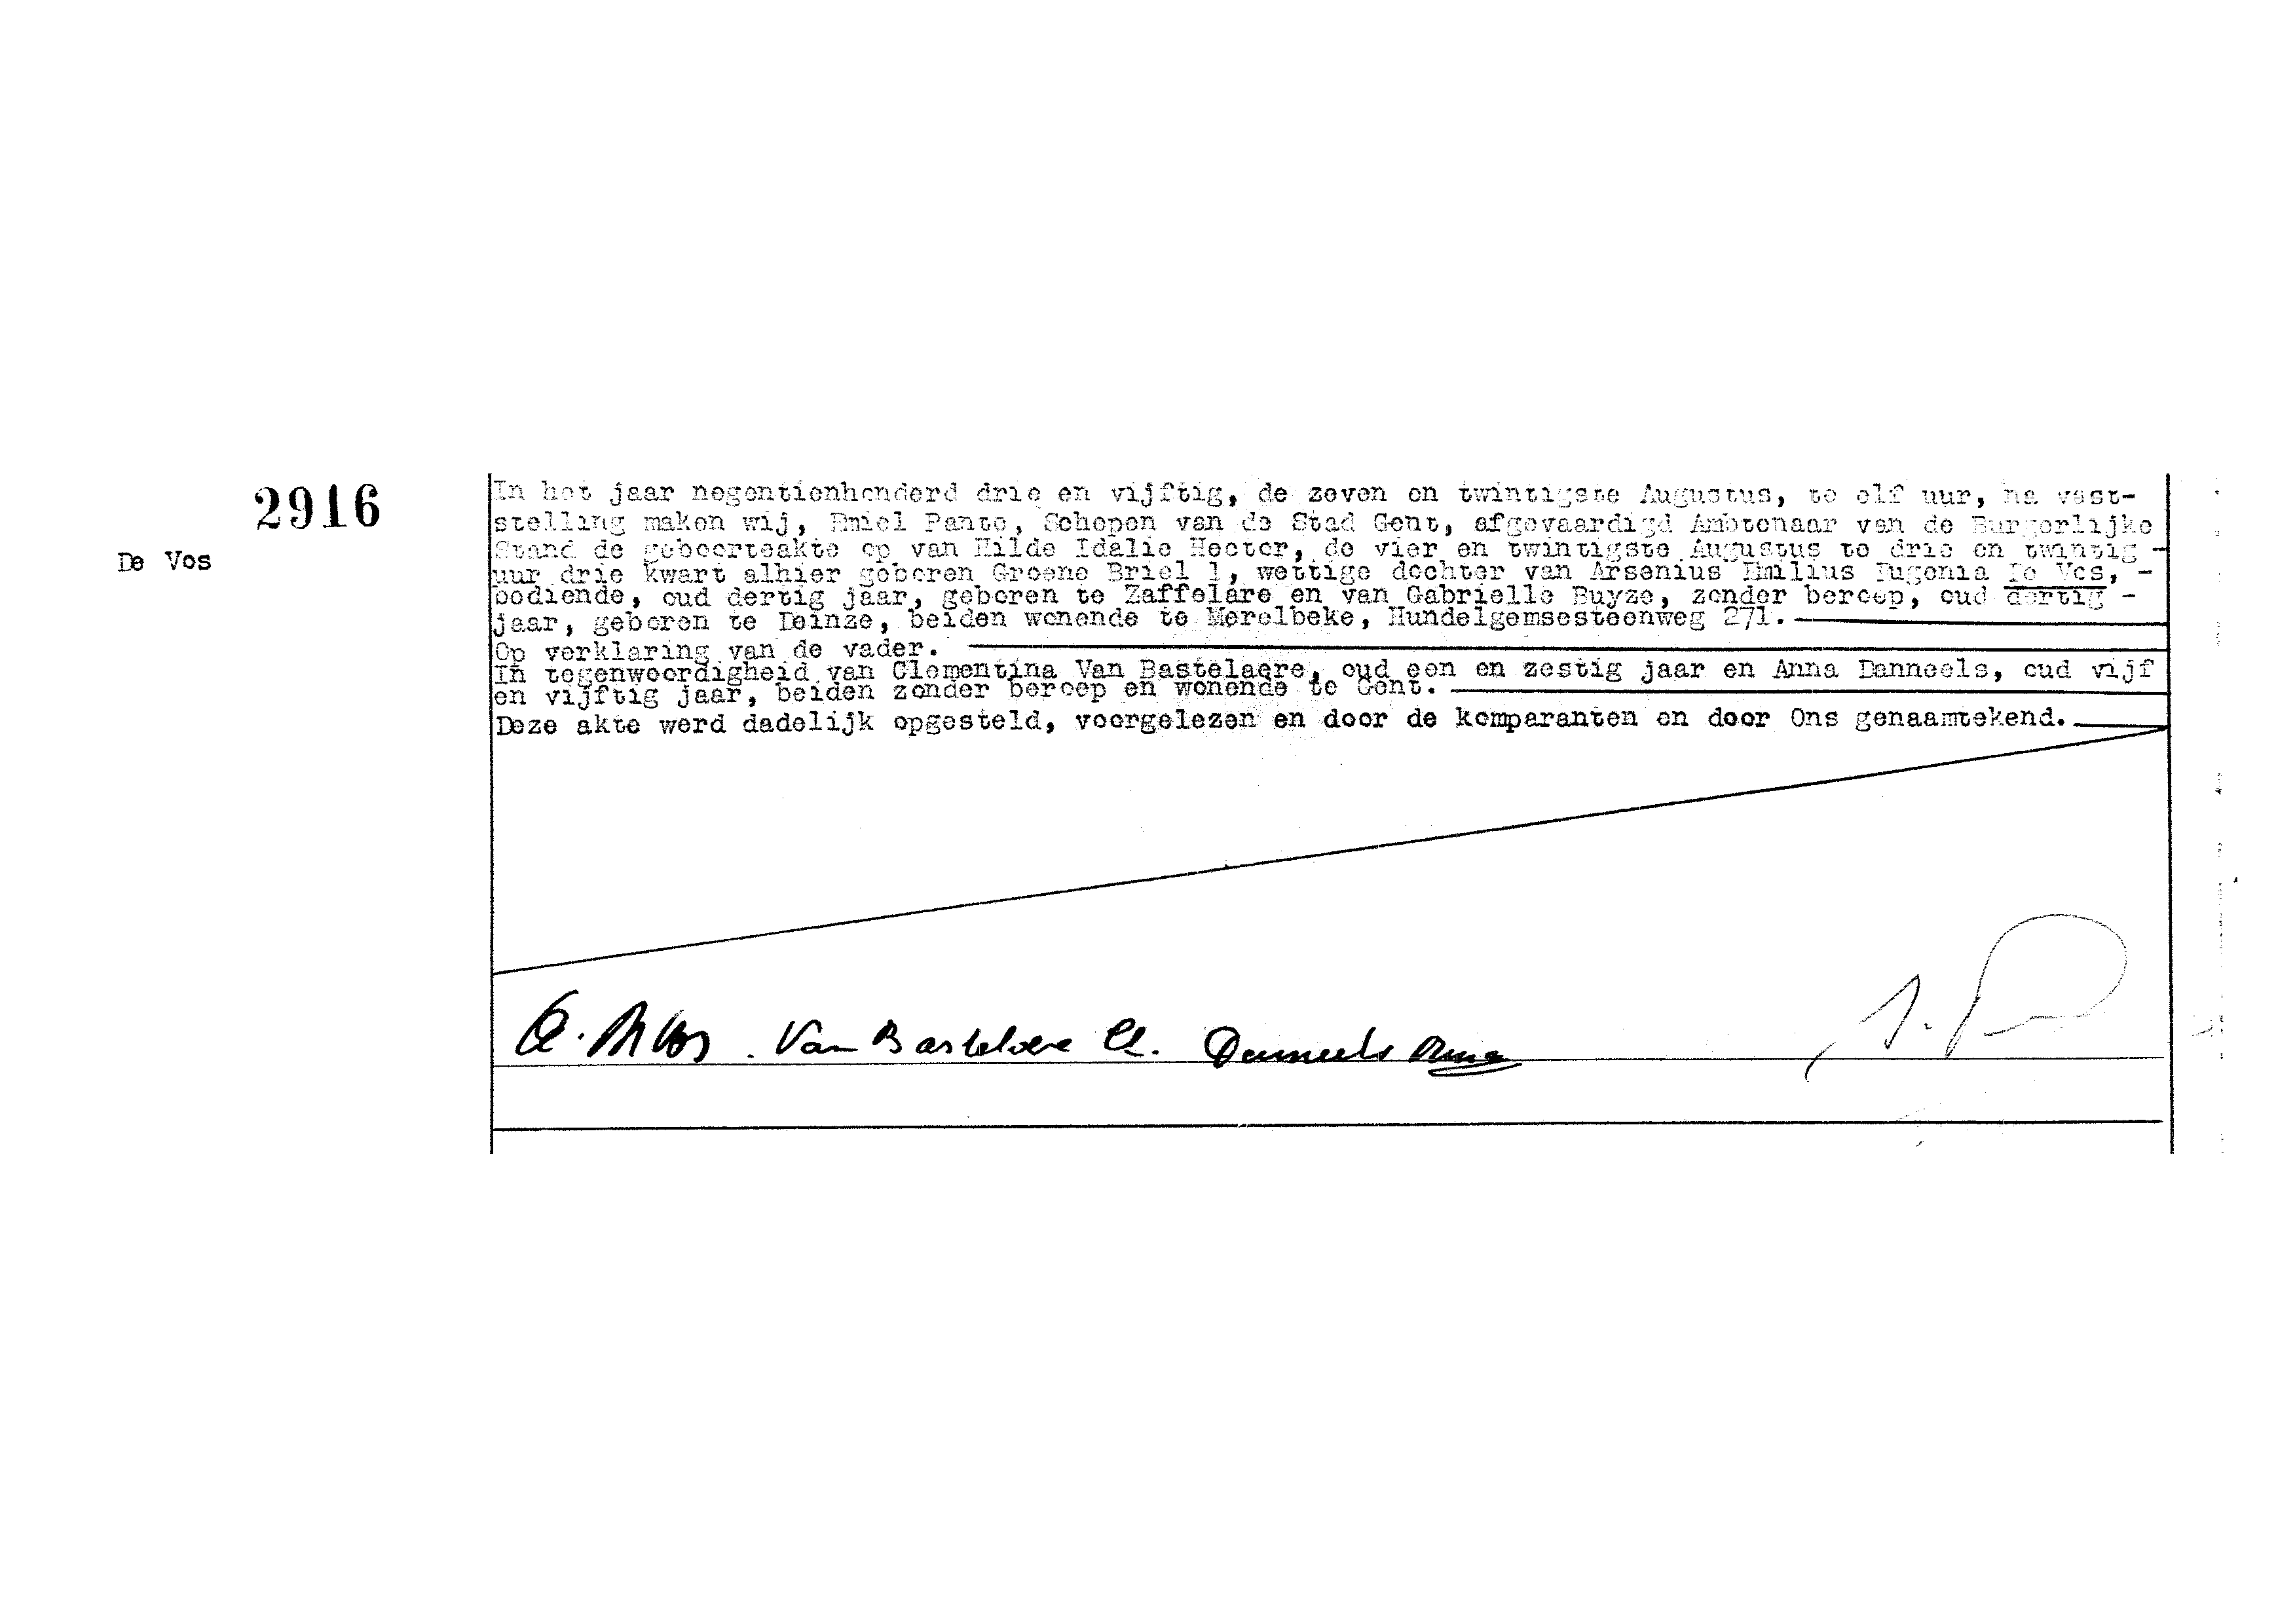 2916
De Vos
In het jaar negentienhonderd drie en vijftig, de zeven en twintigste Augustus, te elf uur, na vast-
stelling maken wij, Emiel Pante, Schepen van de Stad Gent, afgevaardigd Ambtenaar van de Burgerlijke
Stand de geboorteakte op van Hilde Idalie Hector, de vier en twintigste Augustus te drie en twintig -
uur drie kwart alhier geboren Groene Briel 1, wettige dochter van Arsenius Emilius Eugenia De Vos, -
bediende, oud dertig jaar, geboren te Zaffelare en van Gabrielle Buyze, zonder beroep, oud dertig -
jaar, geboren te Deinze, beiden wonende te Merelbeke, Hundelgemsesteenweg 271.
Op verklaring van de vader.
In tegenwoordigheid van Clementina Van Bastelaere, oud een en zestig jaar en Anna Danneels, oud vijf
en vijftig jaar, beiden zonder beroep en wonende te Gent.
Deze akte werd dadelijk opgesteld, voorgelezen en door de komparanten en door Ons genaamtekend.
Van Bastelaere Cl. Danneels Anna